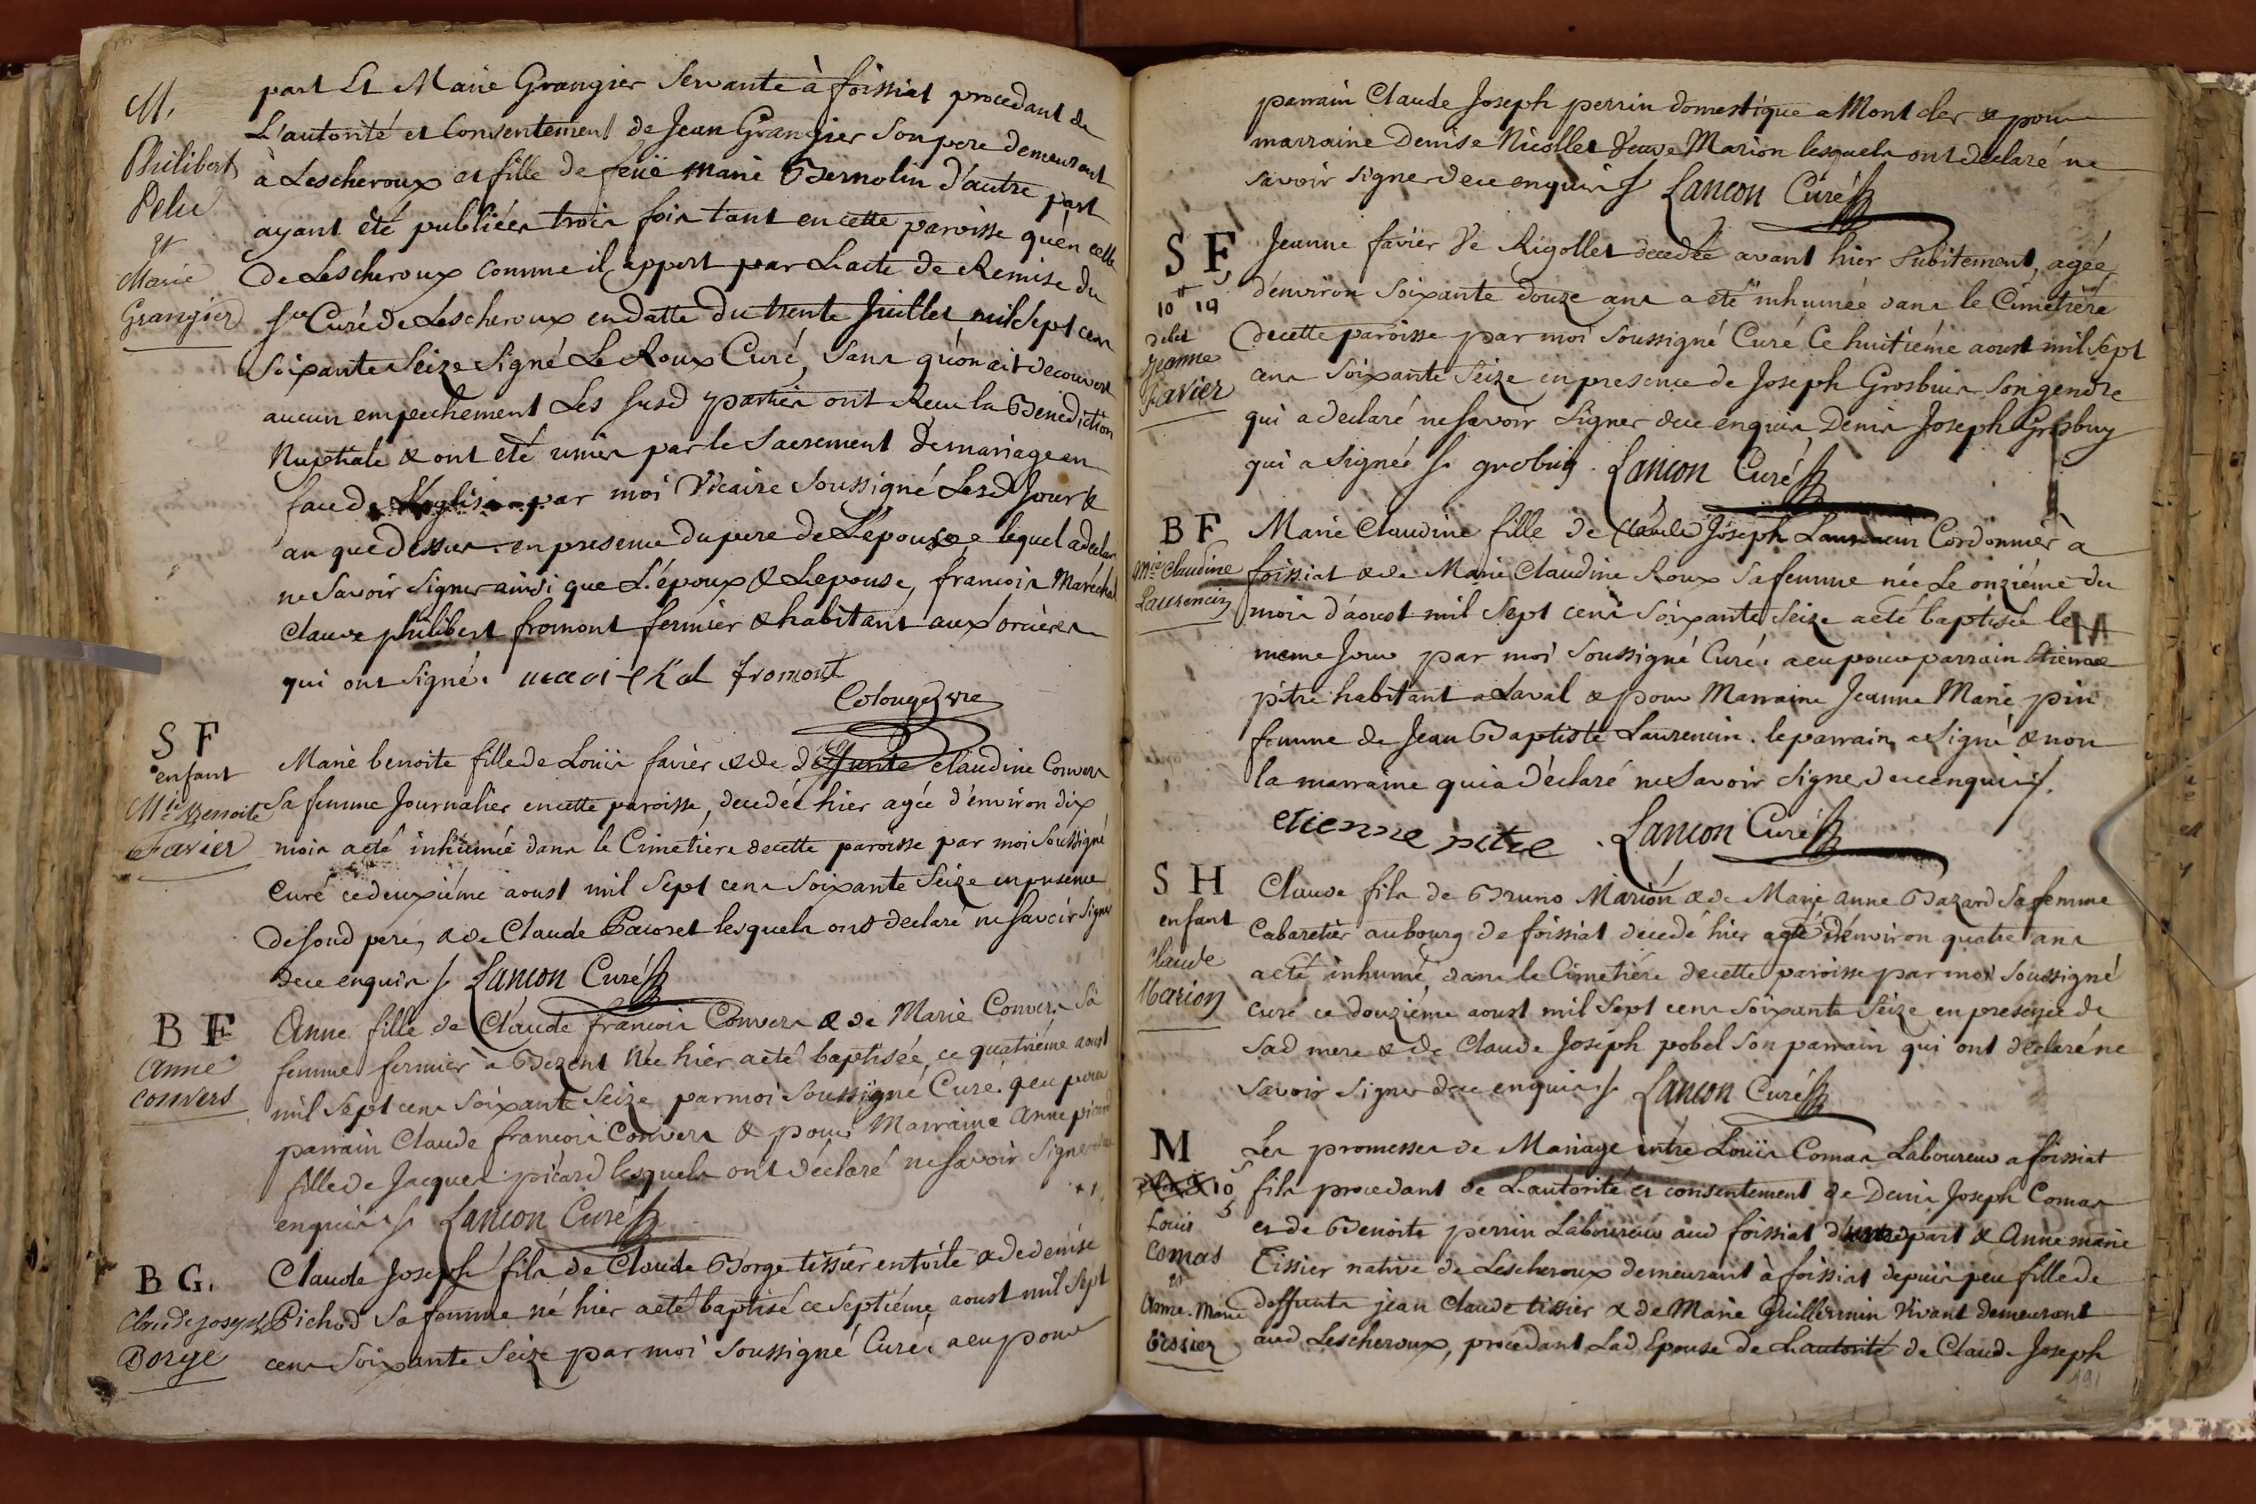 M.
Philibert
Pelu
et
Marie
Grangier
part Et Marie Grangier Servante à foissiat procedant de
L'autorité et Consentement de Jean Grangier Son pere demeurant
à Lescheroux et fille de feüe Marie Bernolin d'autre part
ayant été publiées trois fois tant en cette paroisse qu'en celle
de Lescheroux comme il appert par L'acte de Remise du
Sr Curé de Lescheroux en datte du trente Juillet mil Sept cens
Soixante Seize Signé Le Roux Curé, Sans qu'on ait decouvert
aucun empechement Les Susd parties ont Recu la Benediction
Nuptiale & ont été unies par le Sacrement de mariage en
face de L'eglise par moi Vicaire Soussigné Lesd Jour &
an que dessus en presence du pere de L'epouse lequel a declaré
ne Savoir Signer ainsi que L'époux & L'epouse, francois Maréchal
Claude philibert fromont fermier & habitant aux orcières
qui ont Signé. fromont
Cologne vre
S F
enfant
Mie Benoite
Favier
Marie benoite fille de Loüis favier & de deffunte Claudine Convers
Sa femme Journalier en cette paroisse, decedée hier agée d'environ dix
mois a eté inhumée dans le Cimetiere de cette paroisse par moi Soussigné
Curé ce deuxiéme aoust mil Sept cens Soixante Seize en presence
de Sond pere, & de Claude Pacoret lesquels ont declaré ne Savoir Signer
de ce enquis /. Lancon Curé
B F
Anne
convers
Anne fille de Claude francois Convers & de Marie Convers Sa
femme fermier à Bezent Née hier a eté baptisée, ce quatriéme aoust
mil Sept cens Soixante Seize par moi Soussigné Curé. a eu pour
parrain Claude francois Convers & pour Marraine Anne picard
fille de Jacques picard lesquels ont déclaré ne Savoir Signer de ce
enquis /. Lancon Curé
B G.
Claude joseph
Borge
Claude Joseph fils de Claude Borge tissier en toile & de denise
Pichod Sa femme né hier a eté baptisé ce Septiéme aoust mil Sept
cens Soixante Seize par moi Soussigné Curé, a eu pour
parrain Claude Joseph perrin domestique a Mont cler & pour
marraine Denise Nicollet Veuve Marion lesquels ont déclaré ne
savoir signer de ce enquis /. Lancon Curé
S F
10 tt 19
debet
Jeanne
Favier
Jeanne favier Ve Rigollet decedée avant hier Subitement, agée
d'environ Soixante douze ans a eté inhumée dans le Cimetière
de cette paroisse par moi Soussigné Curé Ce huitiéme aoust mil Sept
cens Soixante Seize en presence de Joseph Grosbuis Son gendre
qui a declaré ne Savoir Signer de ce enquis Denis Joseph Grosbuy
qui a Signé /. grobuy. Lancon Curé
B F
Mie Claudine
Laurencin
Marie Claudine fille de Claude Joseph Laurencin Cordonnier à
foissiat & de Marie Claudine Roux Sa femme née Le onziéme du
mois d'aoust mil Sept cens Soixante Seize a eté baptisée le
meme Jour par moi Soussigné Curé. a eu pour parrain Etienne
pitre habitant a Laval & pour Marraine Jeanne Marie pin
femme de Jean Baptiste Laurencin. le parrain a Signé & non
la marraine qui a déclaré ne Savoir Signer de ce enquis /.
etienne pitre . Lancon Curé
S H
enfant
Claude
Marion
Claude fils de Bruno Marion & de Marie Anne Bazard Sa femme
Cabaretier au bourg de foissiat décedé hier agé d'environ quatre ans
a eté inhumé dans le Cimetiére de cette paroisse par moi Soussigné
Curé ce douziéme aoust mil Sept cens Soixante Seize en presence de
Sad mere & de Claude Joseph pobel Son parrain qui ont déclaré ne
Savoir Signer de ce enquis /. Lancon Curé
M
10
Louis
Comas
et
Anne. Marie
tissier
Les promesses de Mariage entre Loüis Comas Laboureur a foissiat
fils procedant de L'autorité et consentement de Denis Joseph Comas
et de Benoite perrin Laboureur aud foissiat d'une part & Anne marie
Tissier native de Lescheroux demeurant à foissiat depuis peu fille de
deffunts jean Claude tissier & de Marie Guillermin Vivant demeurant
aud Lescheroux, procédant Lad Epouse de L'autorité de Claude Joseph
191